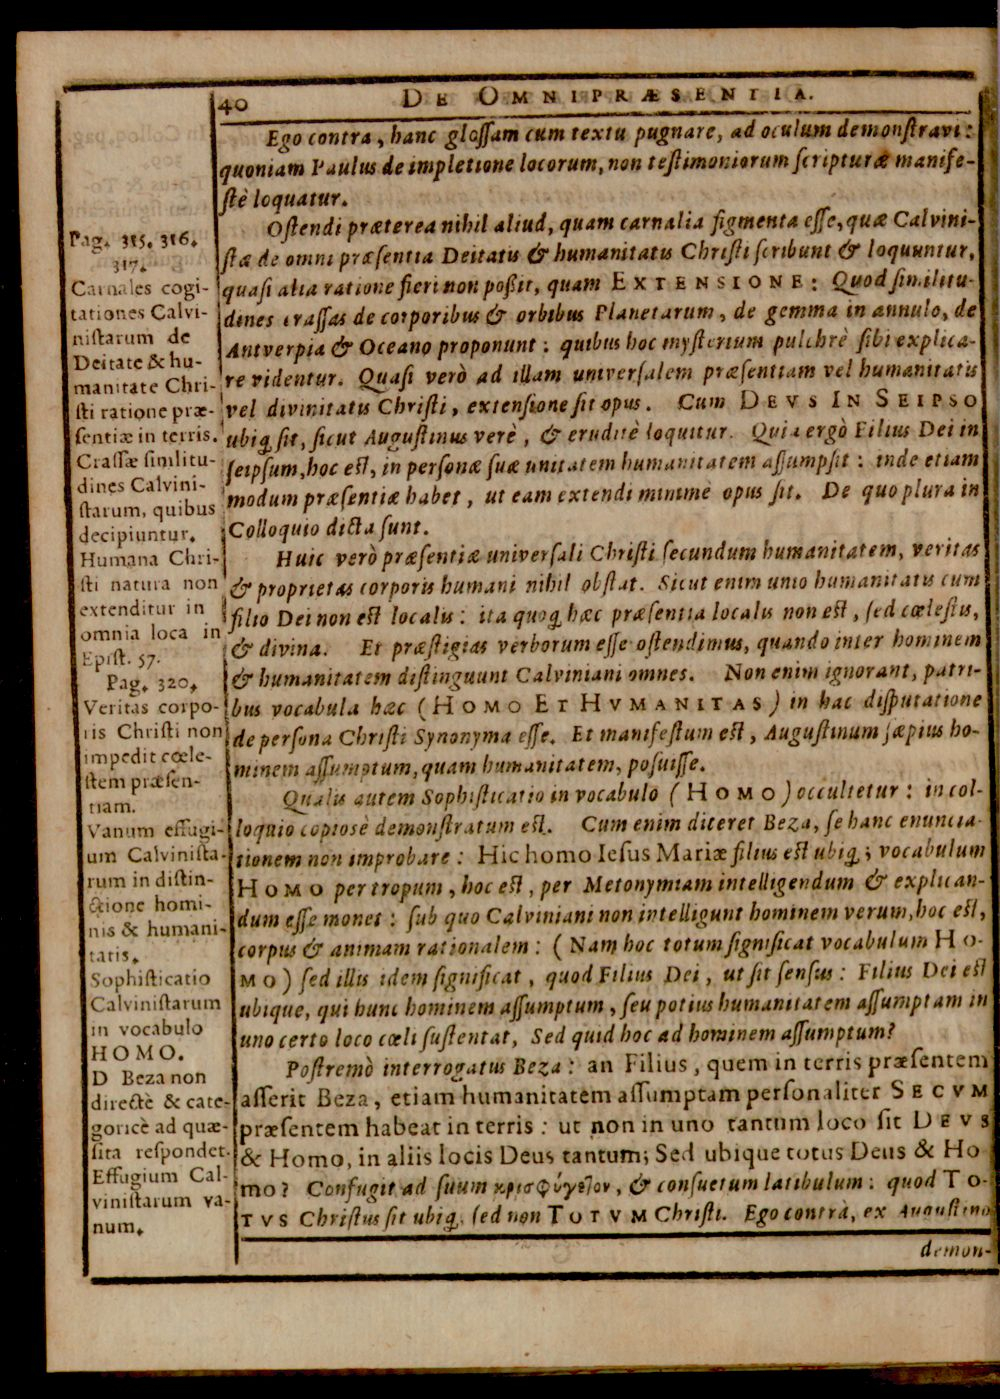 40 DE OMNIPRÆSENTIA.
Ego contra, hanc gloſſam cum textu pugnare, ad oculum demonſtravi:
quoniam Paulus de impletione locorum, non teſtimoniorum ſcripturæ manife-
ſtè loquatur.
Oſtendi præterea nihil aliud, quam carnalia figmenta eſſe, quæ Calvini-
ſtæ de omni præſentia Deitatis & humanitatis Chriſti ſcribunt & loquuntur,
quaſi alia ratione fieri non poßit, quam EXTENSIONE: Quod ſimilitu-
dines craſſas de corporibus & orbibus Planetarum, de gemma in annulo, de
Antverpia & Oceano proponunt: quibus hoc myſterium pulchrè ſibi explica-
re videntur. Quaſi verò ad illam univerſalem præſentiam vel humanitatis
vel divinitatis Chriſti, extenſione ſit opus. Cum DEVS IN SEIPSO
ubiq; ſit, ſicut Auguſtinus verè, & eruditè loquitur. Quia ergò Filius Dei in
ſeipſum, hoc eſt, in perſonæ ſuæ unitatem humanitatem aſſumpſit: inde etiam
modum præſentiæ habet, ut eam extendi minimè opus ſit. De quo plura in
Colloquio dicta ſunt.
Huic verò præſentiæ univerſali Chriſti ſecundum humanitatem, veritas
& proprietas corporis humani nihil obſtat. Sicut enim unio humanitatis cum
filio Dei non eſt localis: ita quoq; hæc præſentia localis non eſt, ſed cœleſtis,
& divina. Et præſtigias verborum eſſe oſtendimus, quando inter hominem
& humanitatem diſtinguunt Calviniani omnes. Non enim ignorant, patri-
bus vocabula hæc (HOMO ET HVMANITAS) in hac diſputatione
de perſona Chriſti Synonyma eſſe. Et manifeſtum eſt, Auguſtinum ſæpius ho-
minem aſſumptum, quam humanitatem, poſuiſſe.
Qualis autem Sophiſticatio in vocabulo (HOMO) occultetur: in col-
loquio copiosè demonſtratum eſt. Cum enim diceret Beza, ſe hanc enuncia-
tionem non improbare: Hic homo Ieſus Mariæ filius eſt ubiq; vocabulum
HOMO per tropum, hoc eſt, per Metonymiam intelligendum & explican-
dum eſſe monet: ſub quo Calviniani non intelligunt hominem verum, hoc eſt,
corpus & animam rationalem: (Nam hoc totum ſignificat vocabulum HO-
MO) ſed illis idem ſignificat, quod Filius Dei, ut ſit ſenſus: Filius Dei eſt
ubique, qui hunc hominem aſſumptum, ſeu potius humanitatem aſſumptam in
uno certo loco cœli ſuſtentat, Sed quid hoc ad hominem aſſumptum?
Poſtremò interrogatus Beza: an Filius, quem in terris præſentem
aſſerit Beza, etiam humanitatem aſſumptam perſonaliter SECVM
præſentem habeat in terris: ut non in uno tantum loco ſit DEVS
& Homo, in aliis locis Deus tantum; Sed ubique totus Deus & Ho
mo? Confugit ad ſuum κρισφύγετον, & conſuetum latibulum: quod TO-
TVS Chriſtus ſit ubiq; ſed non TOTVM Chriſti. Ego contrà, ex Auguſtino
demon-
Pag. 315. 316.
317.
Carnales cogi-
tationes Calvi-
niſtarum de
Deitate & hu-
manitate Chri-
ſti ratione præ-
ſentiæ in terris.
Craſſæ ſimilitu-
dines Calvini-
ſtarum, quibus
decipiuntur.
Humana Chri-
ſti natura non
extenditur in
omnia loca in
Epiſt. 57.
Pag. 320.
Veritas corpo-
ris Chriſti non
impedit cœle-
ſtem præſen-
tiam.
Vanum effugi-
um Calviniſta-
rum in diſtin-
ctione homi-
nis & humani-
tatis.
Sophiſticatio
Calviniſtarum
in vocabulo
HOMO.
D Beza non
directè & cate-
goricè ad quæ-
ſita reſpondet.
Effugium Cal-
viniſtarum va-
num.